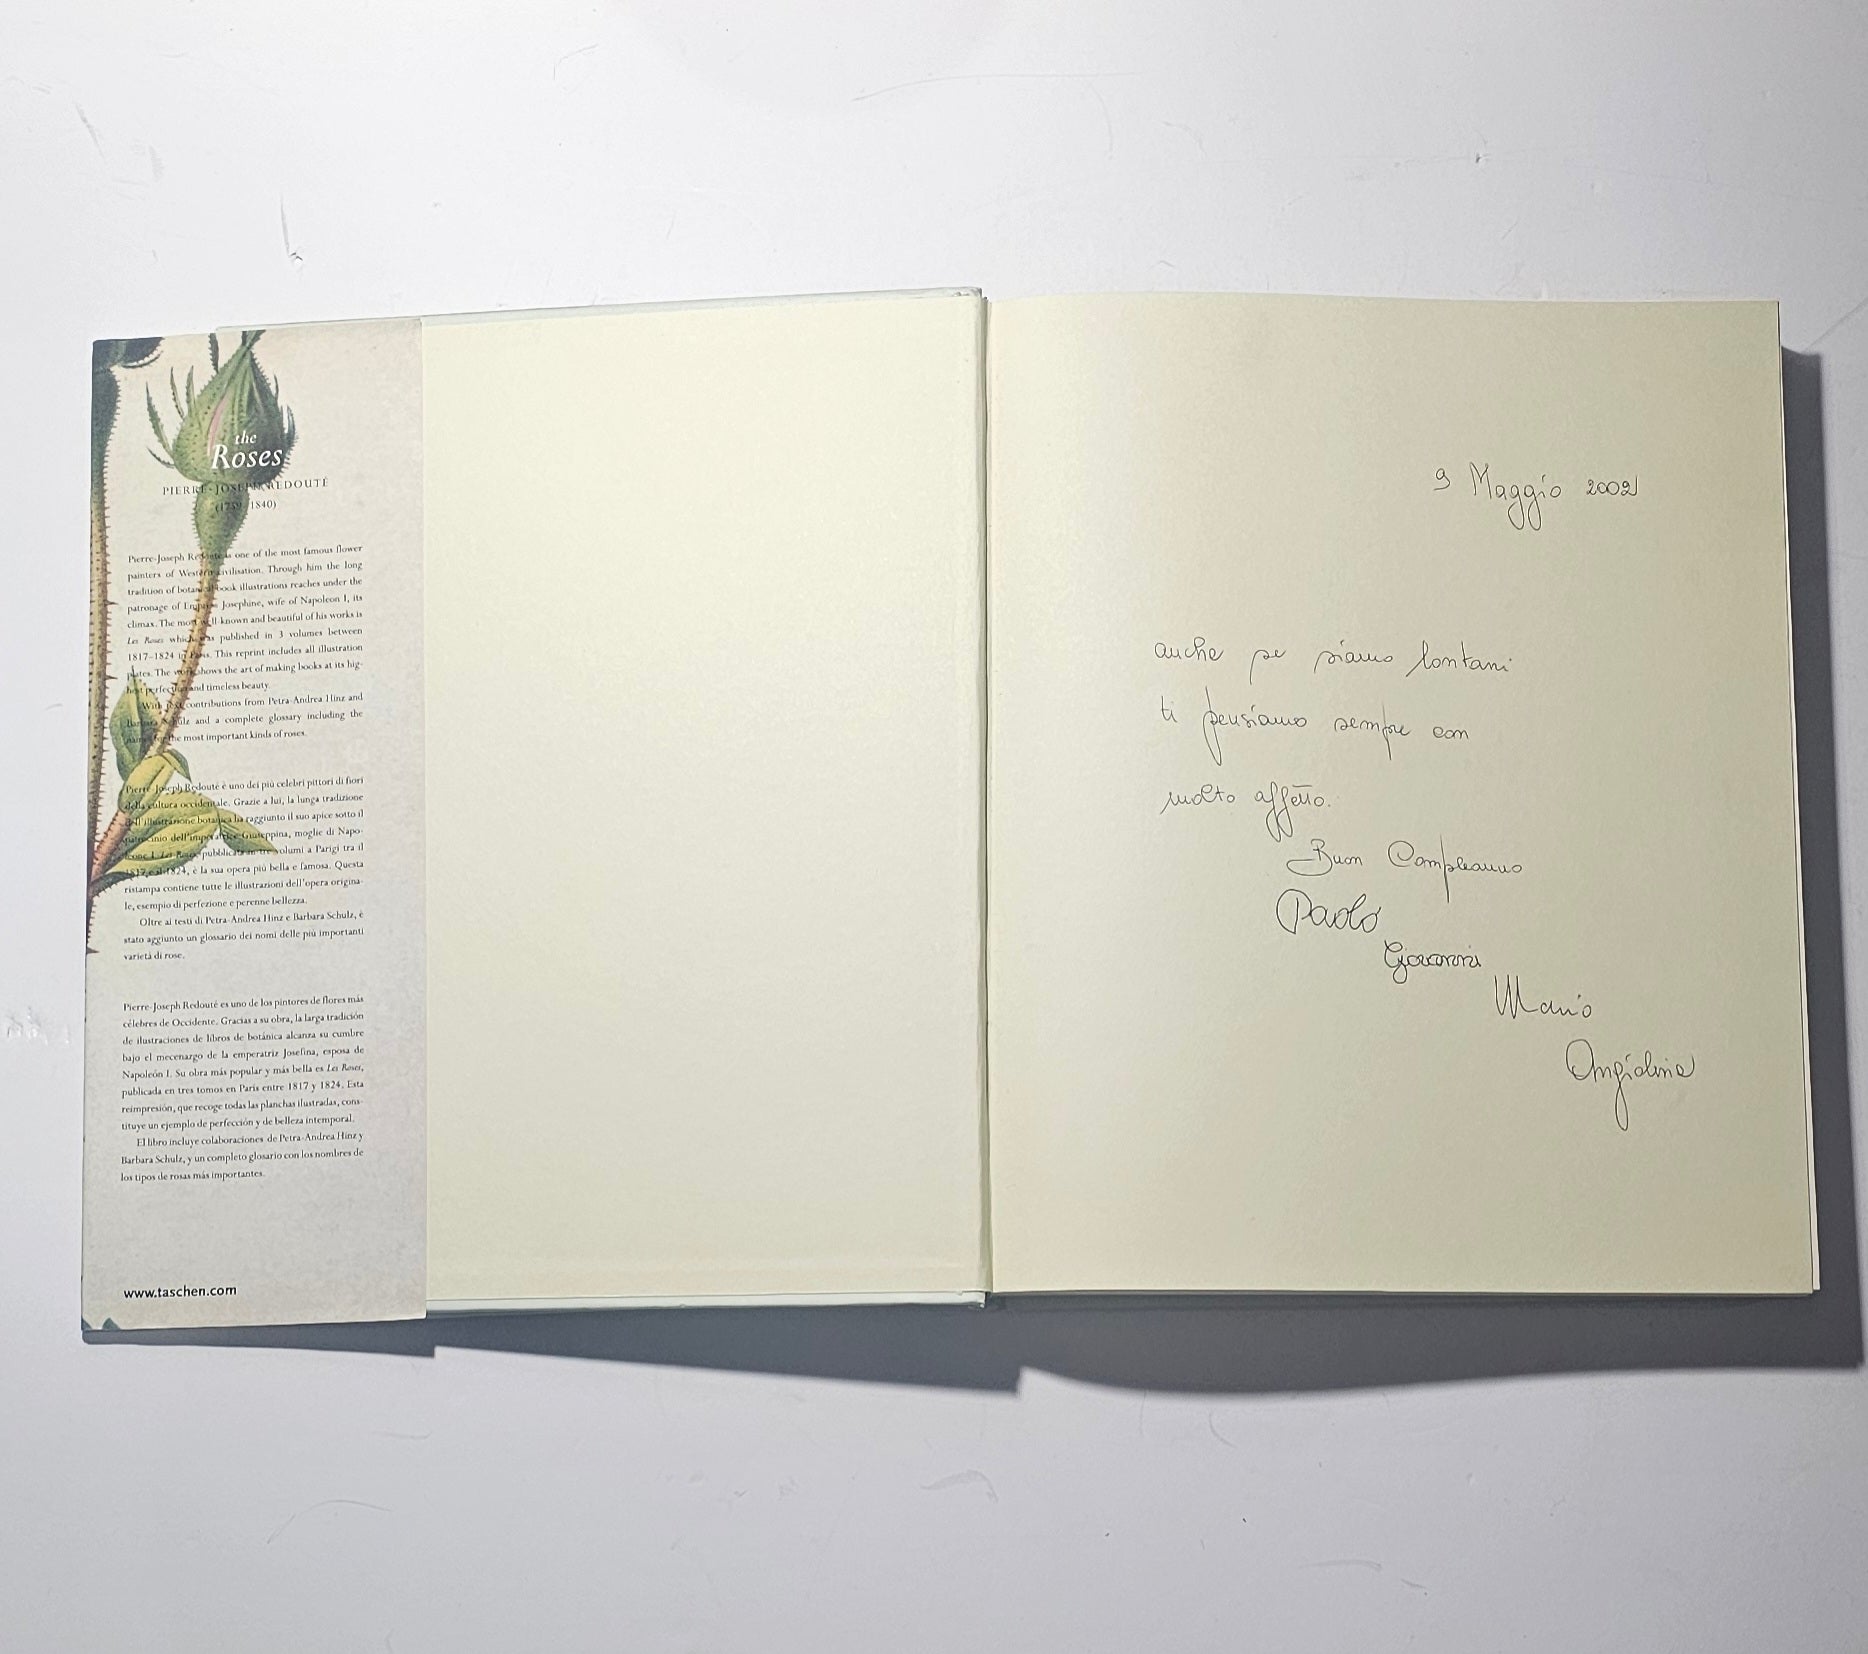 the
Roses
PIERRE-JOSEPH REDOUTÉ
(1759-1840)
Pierre-Joseph Redouté is one of the most famous flower
painters of Western civilisation. Through him the long
tradition of botanical book illustrations reaches under the
patronage of Empress Josephine, wife of Napoleon I, its
climax. The most well known and beautiful of his works is
Les Roses which was published in 3 volumes between
1817–1824 in Paris. This reprint includes all illustration
plates. The work shows the art of making books at its hig-
hest perfection and timeless beauty.
With text contributions from Petra-Andrea Hinz and
Barbara Schulz and a complete glossary including the
names for the most important kinds of roses.
Pierre-Joseph Redouté è uno dei più celebri pittori di fiori
della cultura occidentale. Grazie a lui, la lunga tradizione
dell'illustrazione botanica ha raggiunto il suo apice sotto il
patrocinio dell'imperatrice Giuseppina, moglie di Napo-
leone I. Les Roses, pubblicata in tre volumi a Parigi tra il
1817 e il 1824, è la sua opera più bella e famosa. Questa
ristampa contiene tutte le illustrazioni dell'opera origina-
le, esempio di perfezione e perenne bellezza.
Oltre ai testi di Petra-Andrea Hinz e Barbara Schulz, è
stato aggiunto un glossario dei nomi delle più importanti
varietà di rose.
Pierre-Joseph Redouté es uno de los pintores de flores más
célebres de Occidente. Gracias a su obra, la larga tradición
de ilustraciones de libros de botánica alcanza su cumbre
bajo el mecenargo de la emperatriz Josefina, esposa de
Napoleón I. Su obra más popular y más bella es Les Roses,
publicada en tres tomos en París entre 1817 y 1824. Esta
reimpresión, que recoge todas las planchas ilustradas, cons-
tituye un ejemplo de perfección y de belleza intemporal.
El libro incluye colaboraciones de Petra-Andrea Hinz y
Barbara Schulz, y un completo glosario con los nombres de
los tipos de rosas más importantes.
www.taschen.com
9 Maggio 2002
anche se siamo lontani
ti pensiamo sempre con
molto affetto.
Buon Compleanno
Paolo
Giovanni
Mario
Angiolina